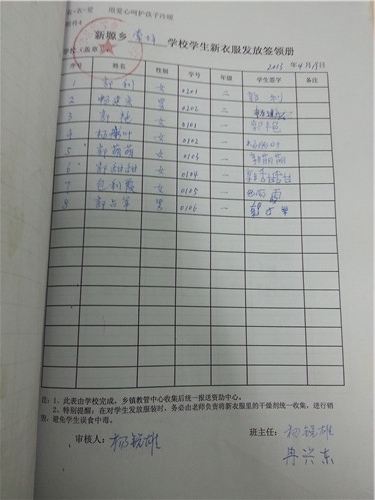 衣·爱 用爱心呵护孩子冷暖
附件4
新塬乡 学校学生新衣服发放签领册
学校（盖章）： 2013 年 4 月 15 日
序号 姓名 性别 学号 年级 学生签字 备注
1 郭利 女 0201 二 郭利
2 男 0202 二
3 郭艳 女 0101 一 郭艳
4 杨 叶 女 0102 一
5 郭萌萌 女 0103 一 郭萌萌
6 郭甜甜 女 0104 一 郭甜甜
7 包利霞 女 0105 一
8 郭占军 男 0106 一 郭占军
注：1、此表由学校完成，乡镇教管中心收集后统一报送资助中心。
2、特别提醒：在对学生发放服装时，务必由老师负责将新衣服里的干燥剂统一收集，进行销
毁，避免学生误食中毒。
审核人：杨锐雄 班主任：杨锐雄
冉兴东